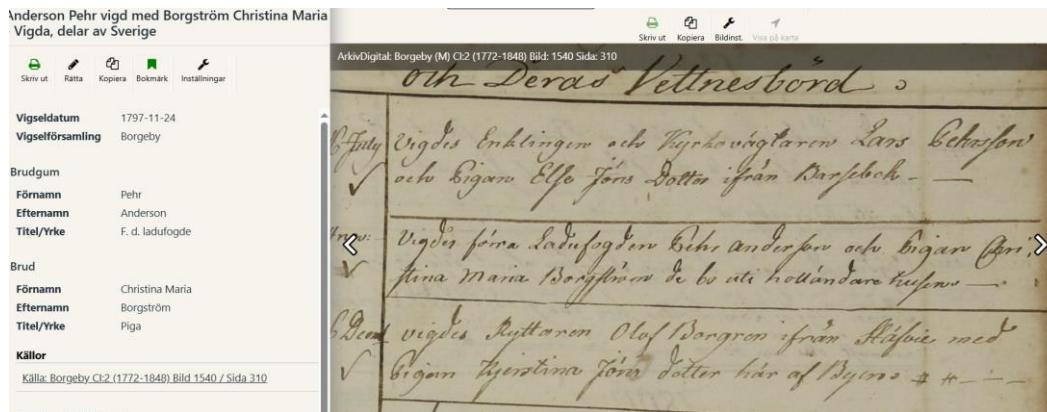 Anderson Pehr vigd med Borgström Christina Maria
- Vigda, delar av Sverige
Skriv ut Rätta Kopiera Bokmärk Inställningar
Vigseldatum 1797-11-24
Vigselförsamling Borgeby
Brudgum
Förnamn Pehr
Efternamn Anderson
Titel/Yrke F. d. ladufogde
Brud
Förnamn Christina Maria
Efternamn Borgström
Titel/Yrke Piga
Källor
Källa: Borgeby CI:2 (1772-1848) Bild 1540 / Sida 310
Skriv ut Kopiera Bildinst. Visa på karta
ArkivDigital: Borgeby (M) CI:2 (1772-1848) Bild: 1540 Sida: 310
och Deras Vettnesbörd
July Vigdes Enklingen och Kyrkovägtaren Lars Pehrsson
och Pigan Else Jöns Dotter ifrån Barsebeck
Vigdes förra Ladufogden Pehr anderson och Pigan Chri-
stina Maria Borgström de bo uti holländare husen
vigdes Ryttaren Olof Borgren ifrån med
Pigan Kjerstina Jöns dotter här af Byen